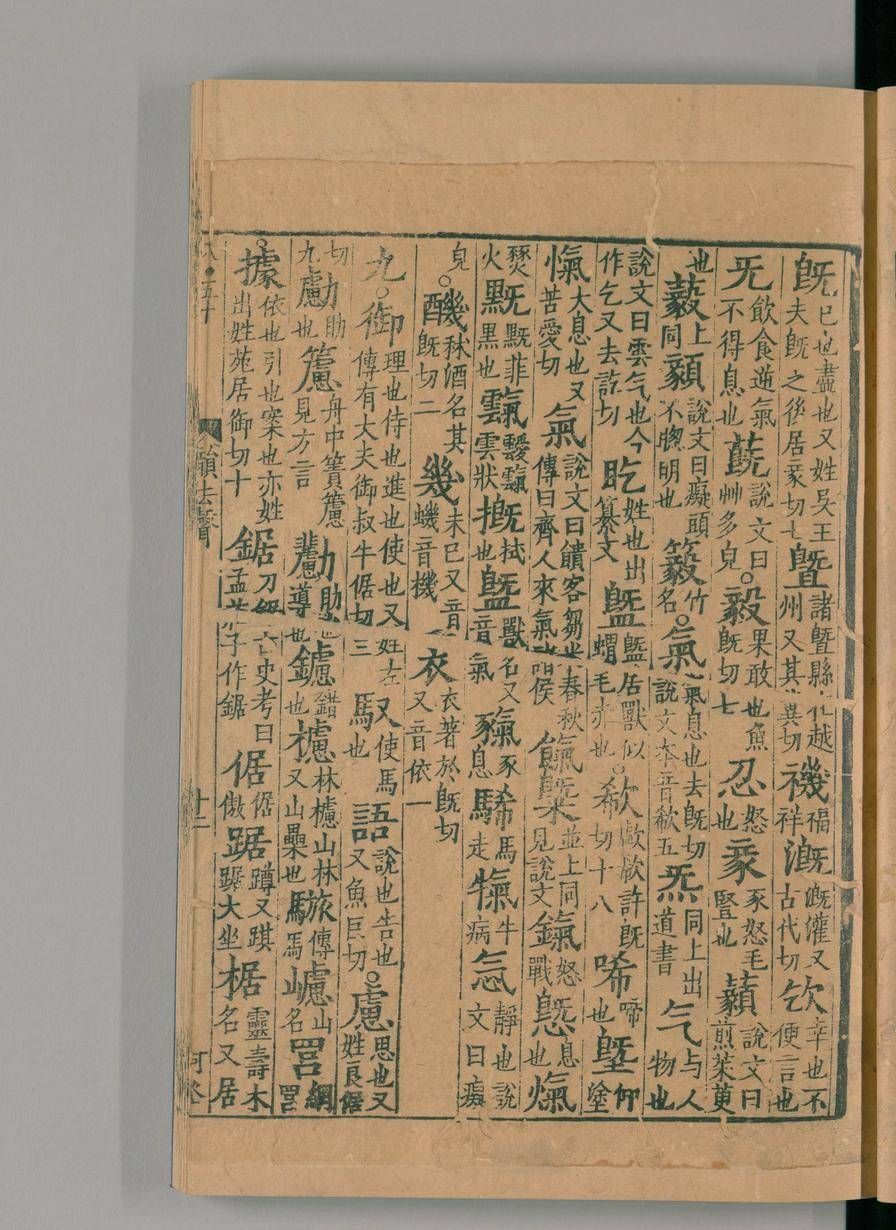 既已也盡也又姓吳王夫既之後居豙切七暨諸暨縣在越州又其冀切禨福祥漑漑灌又古代切㐹幸也不便言也
旡飲食逆氣不得息也蔇說文曰艸多皃。毅果敢也魚既切七忍怒也豙豕怒毛豎也藙說文曰煎茱萸
也藙上同顡說文曰癡頭不聰明也藙竹名。氣氣息也去既切說文本音欷五炁同上出道書气与人物也
說文曰雲气也今作乞又去訖切䀐姓也出纂文𧑐𧑐居獸似蝟毛赤也。欷歔欷許既切十八唏啼也塈仰塗
愾大息也又苦愛切氣說文曰饋客芻米也春秋傳曰齊人來氣諸侯餼𣫓並上同見說文鎎怒戰也㥸息也熂
燹火䵝䵝菲黑也霼靉霼雲狀摡拭也𧑐獸名又音氣豷豕息䮎馬走犔牛病忥靜也說文曰癡
皃。𨣞秫酒名其既切二幾未已又音蟣音機衣衣著於既切又音依一
九。御理也侍也進也使也又姓左傳有大夫御叔牛倨切三馭使馬也語說也告也又魚巨切。慮思也又姓良倨
切九勴助也𥶌舟中簀𥶌見方言勴助也導也鑢錯也櫖林櫖山林又山櫐也𩦡馬𩦡傳馬㠠山名罛網罛
據依也引也案也亦姓出姓苑居御切十鋸刀鋸古史考曰孟莊子作鋸倨倨傲踞蹲又踑踞大坐椐靈壽木名又居
韻去聲 十二